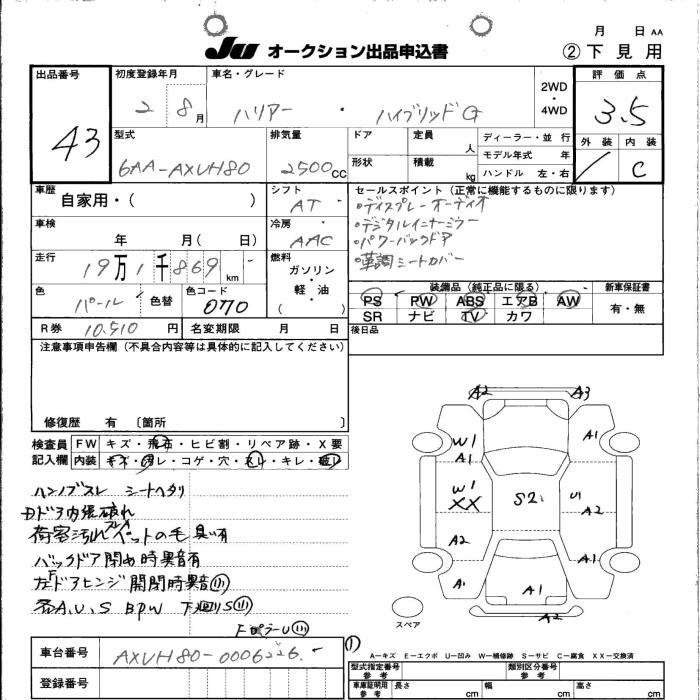 月　日 AA
JU オークション出品申込書
②下見用
出品番号
43
初度登録年月
2 8月
車名・グレード
ハリアー ・ ハイブリッドG
2WD
・
4WD
評価点
3.5
外装 内装
C
型式
6AA-AXUH80
排気量
2500cc
ドア
形状
定員 人
積載 kg
ディーラー・並行
モデル年式 年
ハンドル 左・右
車歴
自家用・( )
シフト
AT
セールスポイント(正常に機能するものに限ります)
○ディスプレーオーディオ
○デジタルインナーミラー
○パワーバックドア
○革調シートカバー
車検
年 月( 日)
冷房
AAC
走行
19万1千869km
燃料
ガソリン
・
軽・油
( )
色
パール
色替
色コード
070
装備品(純正品に限る)
新車保証書
PS PW ABS エアB AW
SR ナビ TV カワ
有・無
R券 10,510円
名変期限 月 日
後日品
注意事項申告欄(不具合内容等は具体的に記入してください)
修復歴 有 〔箇所 〕
検査員
記入欄
FW キズ・飛石・ヒビ割・リペア跡・X要
内装 キズ・汚レ・コゲ・穴・スレ・キレ・破レ
ハンドルスレ シートヘタリ
ドア内張破れ
荷室汚れ ペットの毛 臭い有
バックドア閉め時異音有
左Fドアヒンジ開閉時異音(小)
各A.U.S BPW 下廻りS(小)
FピラーU(小)
A2 A3
W1 A1
A1
W1
XX
S2
U1
A2
A2
A1
A1
A1
A2
スペア
(1)
A－キズ E－エクボ U－凹み W－補修跡 S－サビ C－腐食 XX－交換済
車台番号
AXUH80-0006226
登録番号
型式指定番号
参考
類別区分番号
参考
車庫証明用
参考
長さ cm
幅 cm
高さ cm